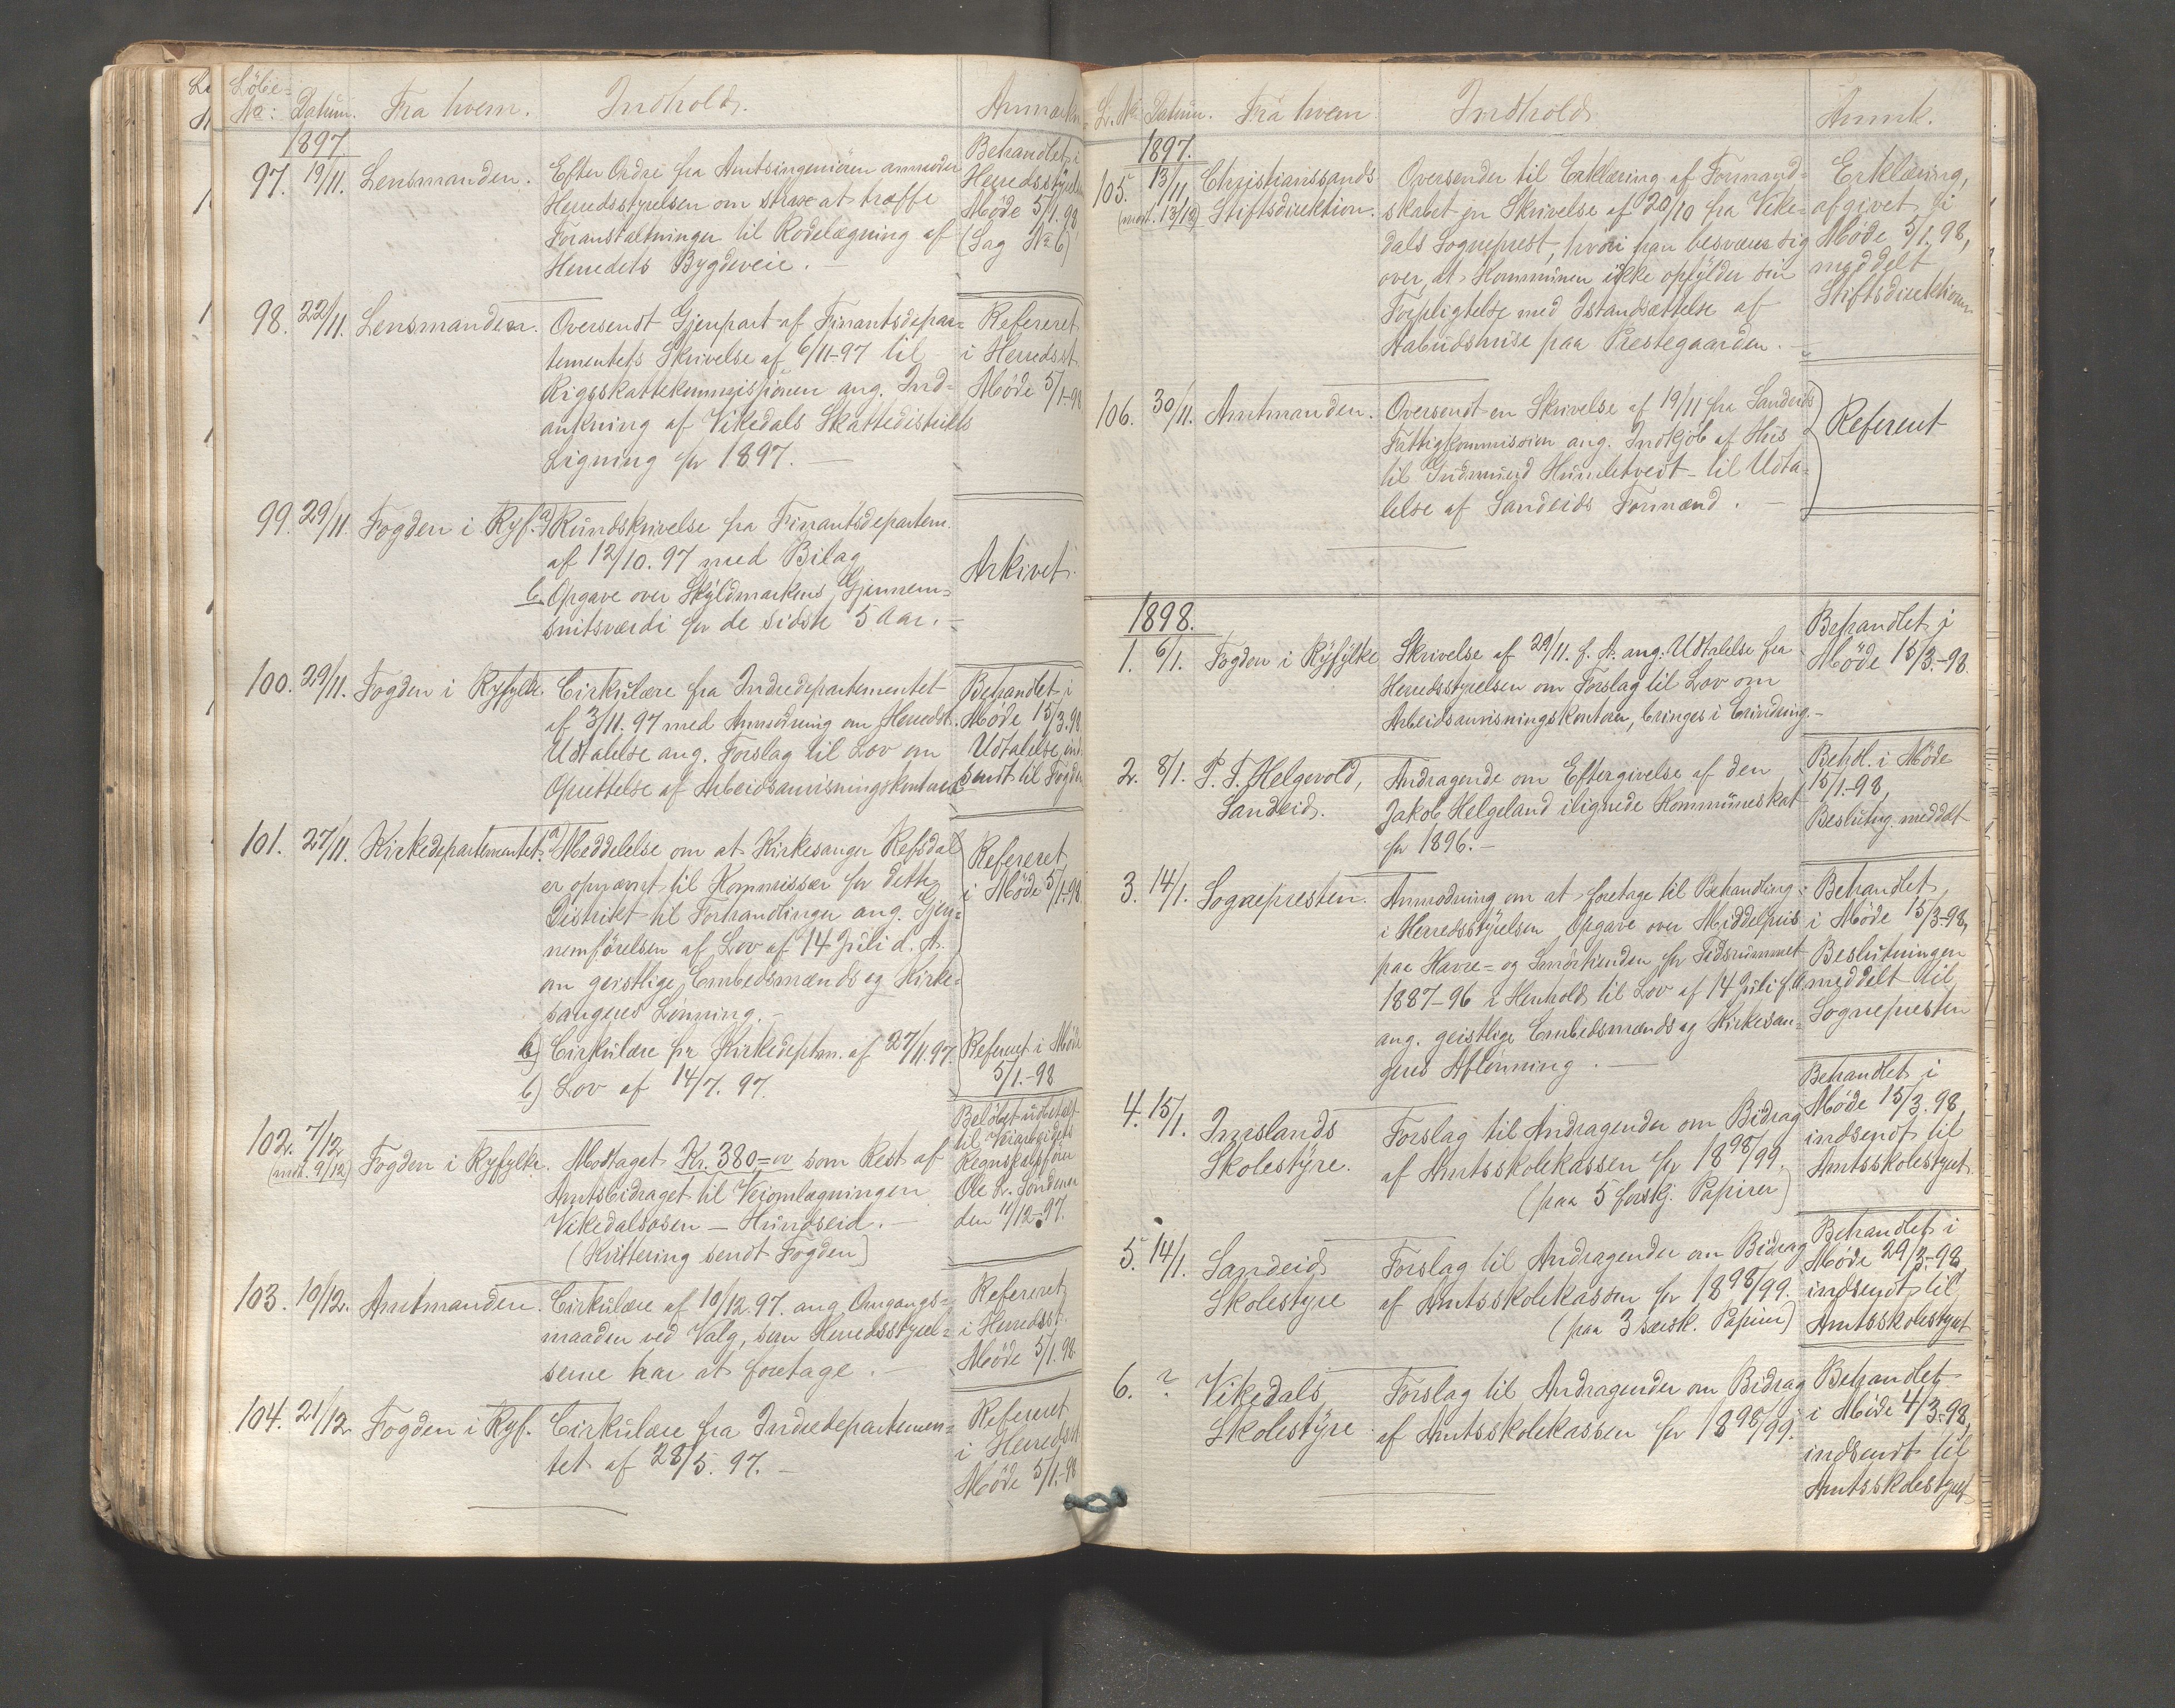 Löbe-
No: Datum. Fra hvem. Indhold.
1897
97. 19/11. Lensmanden. Efter Ordre fra Amtsingeniøren anmoder
Herredsstyrelsen om strax at træffe
Foranstaltninger til Rodelægning af
Herredets Bygdeveie. —
Behandlet i
Møde 5/1. 98
(Sag No 6)
98. 22/11. Lensmanden. Oversendt Gjenpart af Finantsdepar-
tementets Skrivelse af 6/11-97 til
Rigsskattekommissionen ang. Ind-
ankning af Vikedals Skattedistrikts
Ligning for 1897. —
Refereret
i Herredsst.
Møde 5/1-98
99. 29/11. Fogden i Ryf. a) Rundskrivelse fra Finantsdepartem.
af 12/10. 97 med Bilag
b. Opgave over Skyldmarkens Gjennem-
snitsværdi for de sidste 5 Aar. —
Arkivet.
100. 29/11. Fogden i Ryfylke. Cirkulære fra Indredepartementet
af 3/11. 97 med Anmodning om Herredst.
Udtalelse ang. Forslag til Lov om
Oprettelse af Arbeidsanvisningskontorer
Behandlet i
Møde 15/3. 98
Udtalelse ind-
sendt til Fogden
101. 27/11. Kirkedepartementet. a) Meddelelse om at Kirkesanger Refsdal
er opnævnt til Kommissær for dette
Distrikt til Forhandlinger ang. Gjen-
nemførelsen af Lov af 14 Juli d. A.
om geistlige Embedsmænds og Kirke-
sangeres Lønning. —
Refereret
i Møde 5/1-98
b) Cirkulære fra Kirkedeptm. af 27/11. 97.
b) Lov af 14/7. 97.
Refereret i Møde
5/1.-98
102. 7/12 (mot. 9/12) Fogden i Ryfylke. Modtaget Kr. 380=00 som Rest af
Amtsbidraget til Veiomlægningen
Vikedalsosen — Hundseid. —
(Kvittering sendt Fogden)
Beløbet udbetalt
til Veiarbeidets
Regnskabsfører
den 11/12-97.
103. 10/12. Amtmanden. Cirkulære af 10/12. 97. ang. Omgangs-
maaden ved Valg, som Herredsstyrel-
serne har at foretage. —
Refereret
i Herredsst.
Møde 5/1. 98
104. 21/12 Fogden i Ryf. Cirkulære fra Indredepartemen-
tet af 28/5. 97. —
Refereret
i Herredsst
Møde 5/1.-98
L. No. Datum. Fra hvem Indhold Anmk.
1897.
105. 13/11 (mot. 13/12) Christianssands
Stiftsdirektion.
Oversender til Erklæring af Formand-
skabet en Skrivelse af 20/10 fra Vike-
dals Sogneprest, hvori han besværer sig
over, at Kommunen ikke opfylder sin
Forpligtelse med Istandsættelse af
Aabudshuse paa Prestegaarden. —
Erklæring,
afgivet i
Møde 5/1. 98,
meddelt
Stiftsdirektionen
106. 30/11. Amtmanden. Oversendt en Skrivelse af 19/11 fra Sandeids
Fattigkommission ang. Indkjøb af Hus
til Gudmund til Udta-
lelse af Sandeids Formænd. —
Refereret
1898.
1. 6/1. Fogden i Ryfylke Skrivelse af 29/11. f. A. ang. Udtalelse fra
Herredsstyrelsen om Forslag til Lov om
Arbeidsanvisningskontorer, bringes i Erindring. —
Behandlet i
Møde 15/3.-98.
2. 8/1. T. T. Helgevold,
Sandeid.
Andragende om Eftergivelse af den
Jakob Helgeland ilignede Kommuneskat
for 1896. —
Behdl. i Møde
15/1.-98,
Beslutng. meddelt
3. 14/1. Sognepresten. Anmodning om at foretage til Behandling
i Herredsstyrelsen Opgave over Middelpris
paa Havre- og Smørtienden for Tidsrummet
1887-96 i Henhold til Lov af 14 Juli f. A.
ang. geistlige Embedsmænds og Kirkesan-
geres Aflønning. —
Behandlet
i Møde 15/3-98,
Beslutningen
meddelt til
Sognepresten
4. 15/1. Imslands
Skolestyre.
Forslag til Andragender om Bidrag
af Amtsskolekassen for 1898/99.
(paa 5 forskj. Papirer)
Behandlet i
Møde 15/3. 98,
indsendt til
Amtsskolestyret.
5. 14/1. Sandeid
Skolestyre
Forslag til Andragender om Bidrag
af Amtsskolekassen for 1898/99.
(paa 3 særsk. Papirer)
Behandlet i
Møde 29/3.-98,
indsendt til
Amtsskolestyret
6. ? Vikedals
Skolestyre
Forslag til Andragender om Bidrag
af Amtsskolekassen for 1898/99.
Behandlet
i Møde 4/3.-98,
indsendt til
Amtsskolestyret